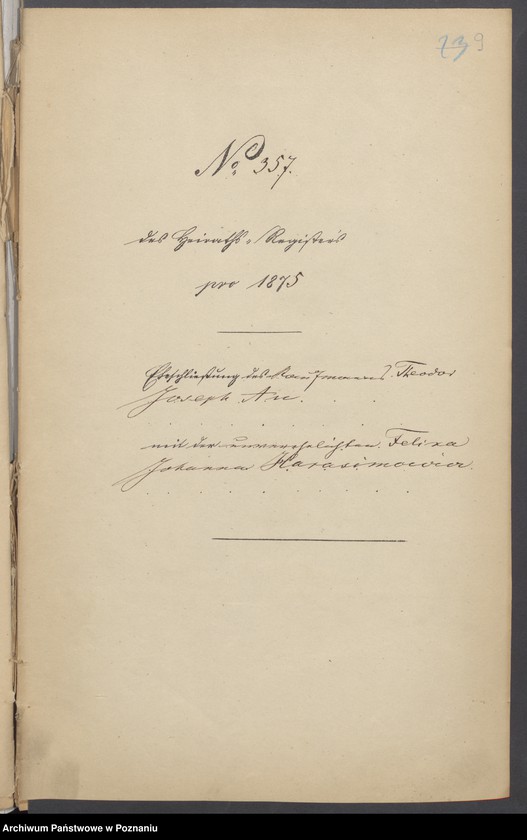 239
No. 357.
des Heiraths-Registers
pro 1875
Eheschließung des Kaufmanns Theodor
Joseph Au.
mit der unverehelichten Felixa
Johanna Harasimowicz.
Archiwum Państwowe w Poznaniu